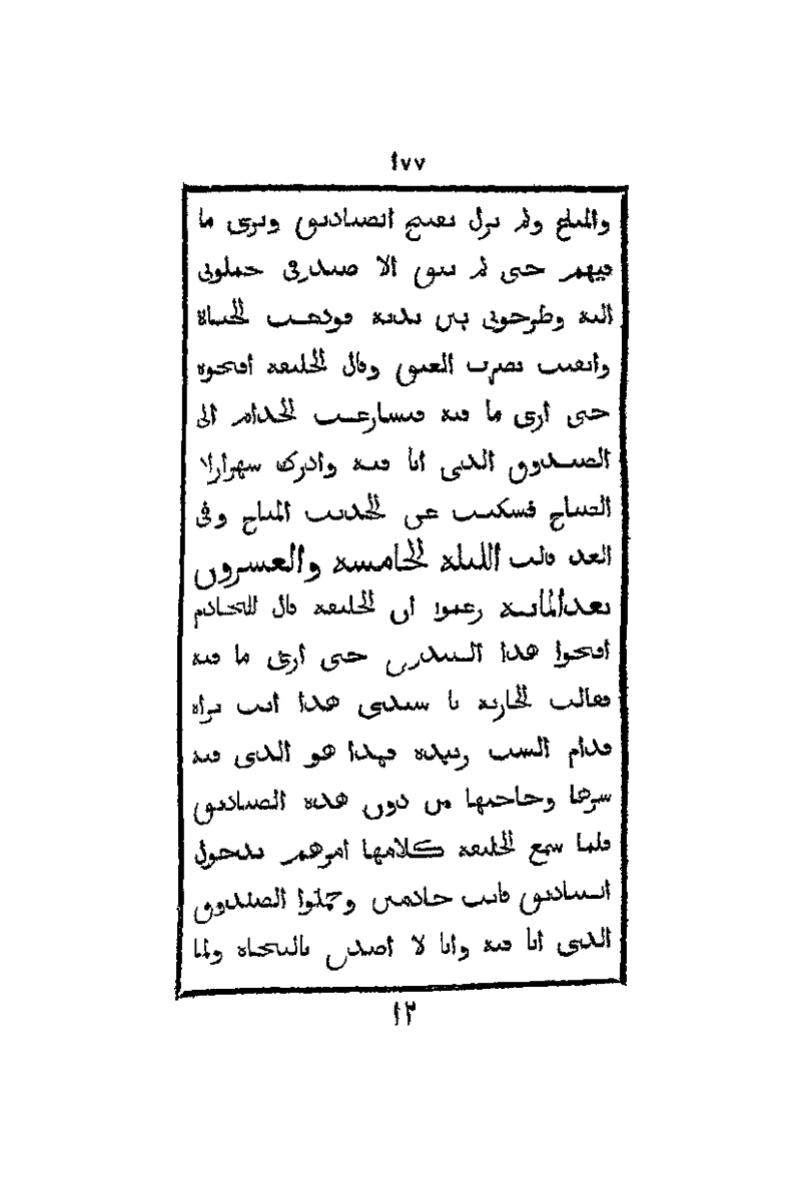 ١٧٧
والملح ولم نزل نفتح الصناديق ونرى ما
فيهم حتى لم يبق الا صندوقي حملوني
اليه وطرحوني بين يديه فودعت الحياة
وايقنت بضرب العنق وقال الخليفة افتحوه
حتى ارى ما فيه فتسارعت الخدام الى
الصندوق الذي انا فيه وادرك شهرازاد
الصباح فسكتت عن الحديث المباح وفي
الغد قالت الليلة الخامسة والعشرون
بعد المائة زعموا ان الخليفة قال للخادم
افتحوا هذا حتى ارى ما فيه
فقالت الجارية يا سيدي هذا انت تراه
قدام الست زبيدة فهذا هو الذي فيه
سرها وحاجتها من دون هذه الصناديق
فلما سمع الخليفة كلامها امرهم بدخول
الصناديق فاتت خادمين وحملوا الصندوق
الذي انا فيه وانا لا اصدق بالنجاة ولما
١٢